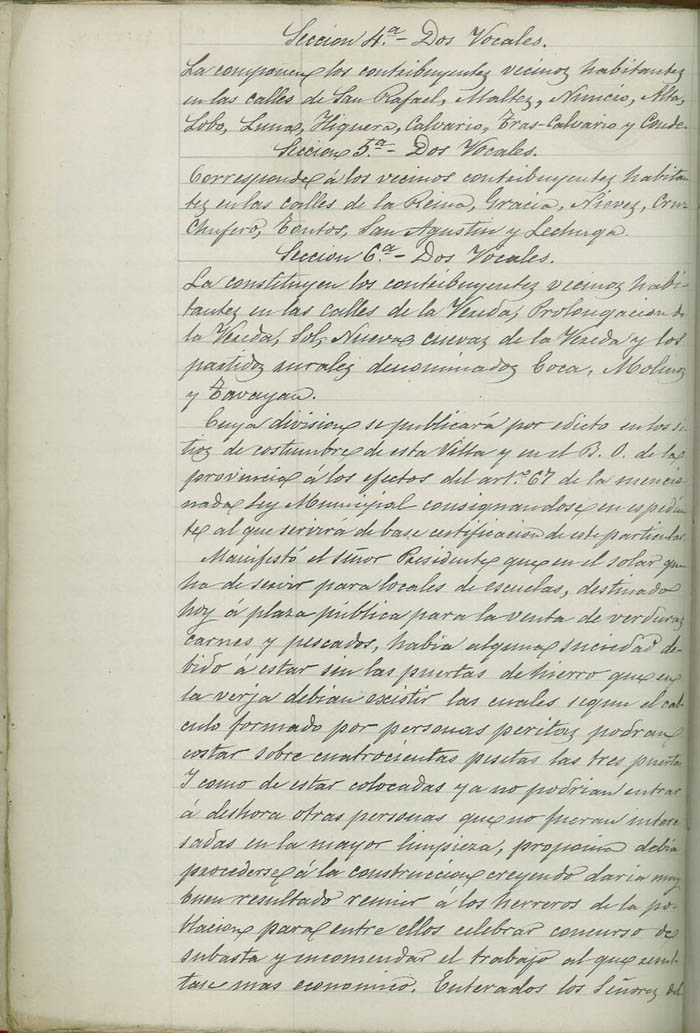 Seccion 4.ª - Dos Vocales.
La componen los contribuyentes vecinos habitantes
en las calles de San Rafael, Maltes, Nuncio, Alta,
Lobo, Luna, Higuera, Calvario, Tras-Calvario y Conde.
Seccion 5.ª - Dos Vocales.
Corresponde á los vecinos contribuyentes habitan
tes en las calles de la Reina, Gracia, Nieves, Cruz
Chufero, Tentos, San Agustin y Lechuga.
Seccion 6.ª - Dos Vocales.
La constituyen los contribuyentes vecinos habi-
tantes en las calles de la Vereda, Prolongacion de
la Vereda, Sol, Nueva, cuevas de la Vereda y los
partidos rurales denominados Coca, Molinos
y Tarayan.
Cuya division se publicará por edicto en los si
tios de costumbre de esta Villa y en el B. O. de la
provincia á los efectos del art.º 67 de la mencio
nada Ley Municipal consignandose en espedien
te al que servirá de base certificacion de este particular.
Manifestó el señor Presidente que en el solar que
ha de servir para locales de escuelas, destinado
hoy a plaza pública para la venta de verduras
carnes y pescados, habia alguna suciedad de-
bido á estar sin las puertas de hierro que en
la verja debian existir las cuales segun el cal-
culo formado por personas peritas podran
costar sobre cuatrocientas pesetas las tres puertas
Y como de estar colocadas ya no podrian entrar
á deshora otras personas que no fueran intere
sadas en la mayor limpieza, proponia debia
procederse á la construccion creyendo daria muy
buen resultado reunir á los herreros de la po-
blacion para entre ellos celebrar concurso de
subasta y encomendar el trabajo al que resul
tase mas economico. Enterados los Señores del